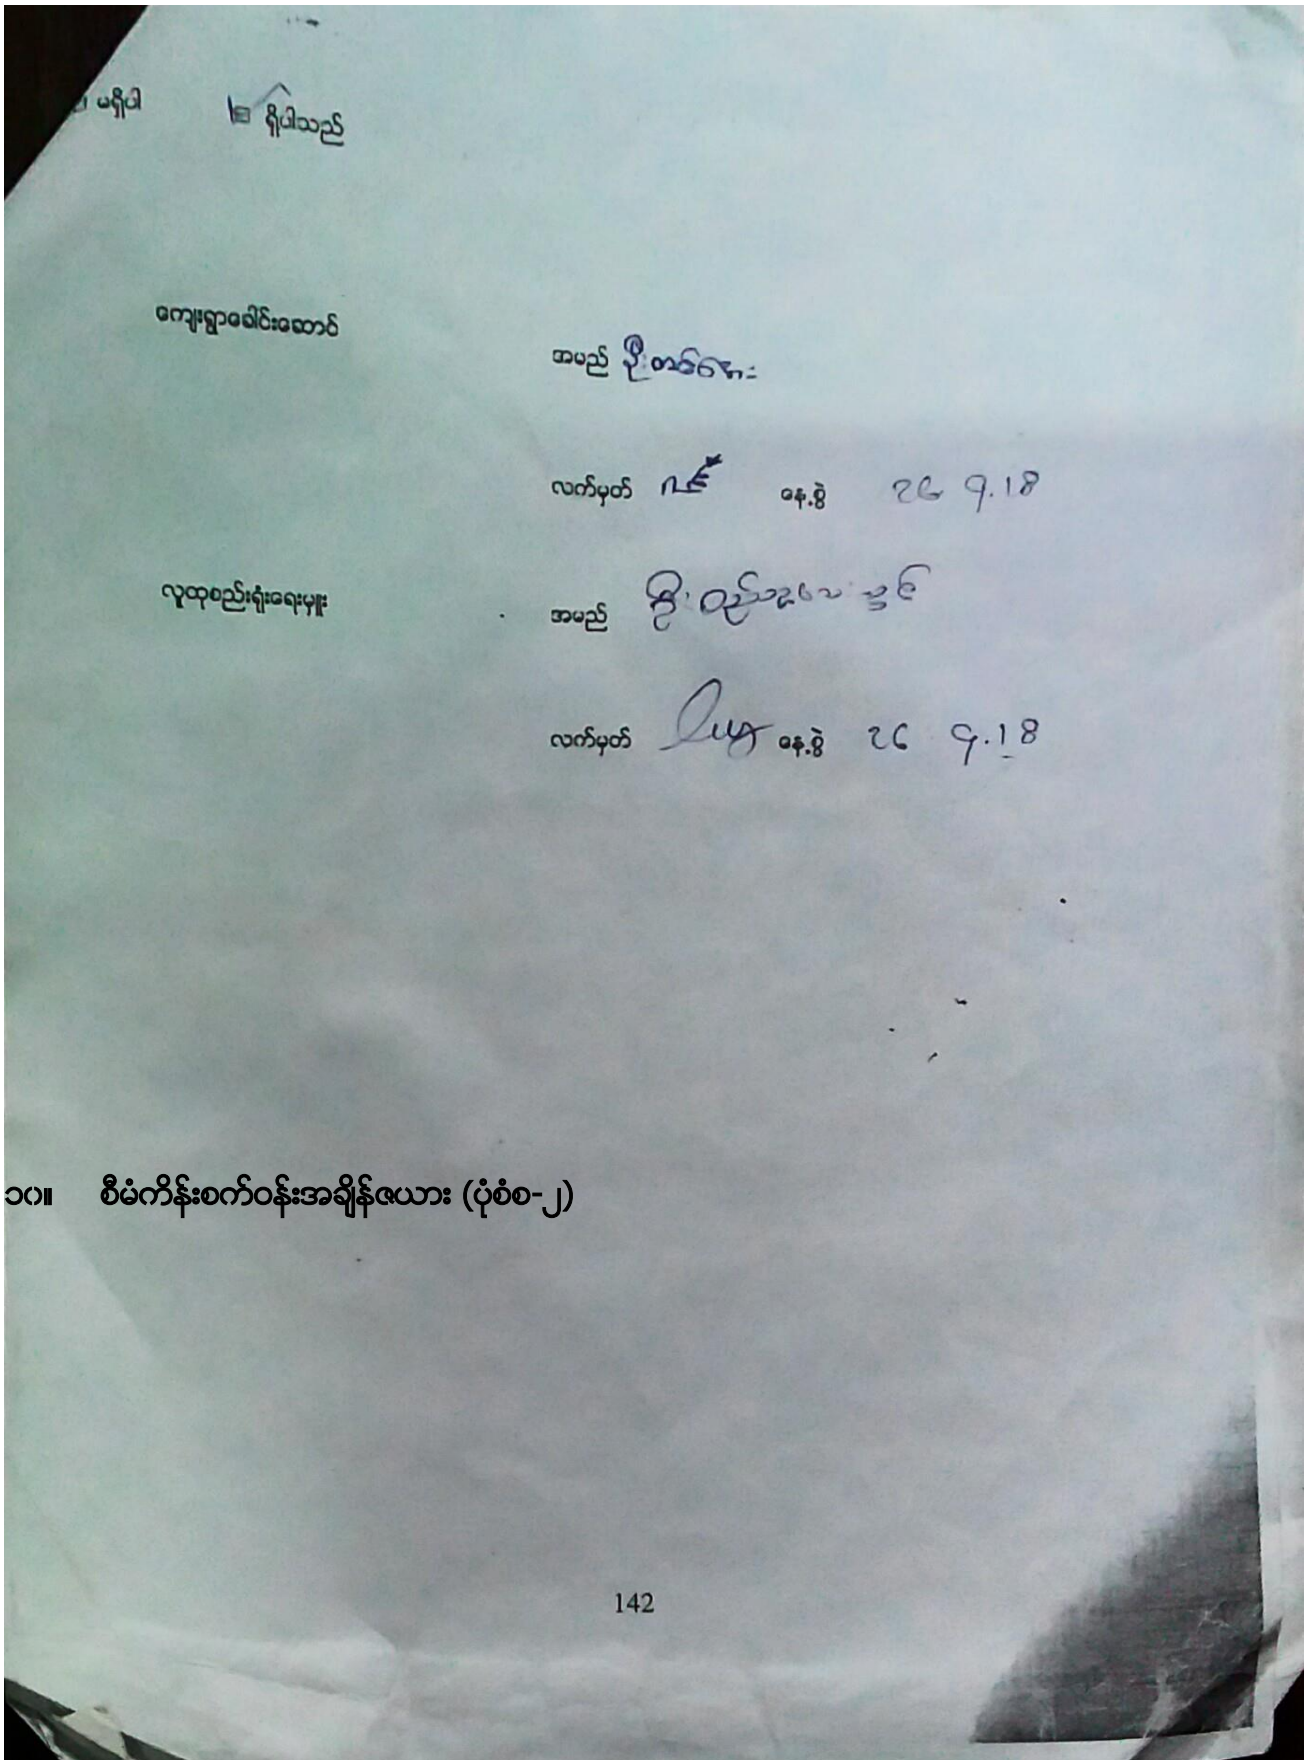 မရှိပါ ရှိပါသည်
ကျေးရွာခေါင်းဆောင်
အမည် ဦးတင်အေး
လက်မှတ် နေ့စွဲ 26 9.18
လူထုစည်းရုံးရေးမှူး
အမည် ဦး
လက်မှတ် နေ့စွဲ 26 9.18
၁၀။ စီမံကိန်းစက်ဝန်းအချိန်ဇယား (ပုံစံစ-၂)
142